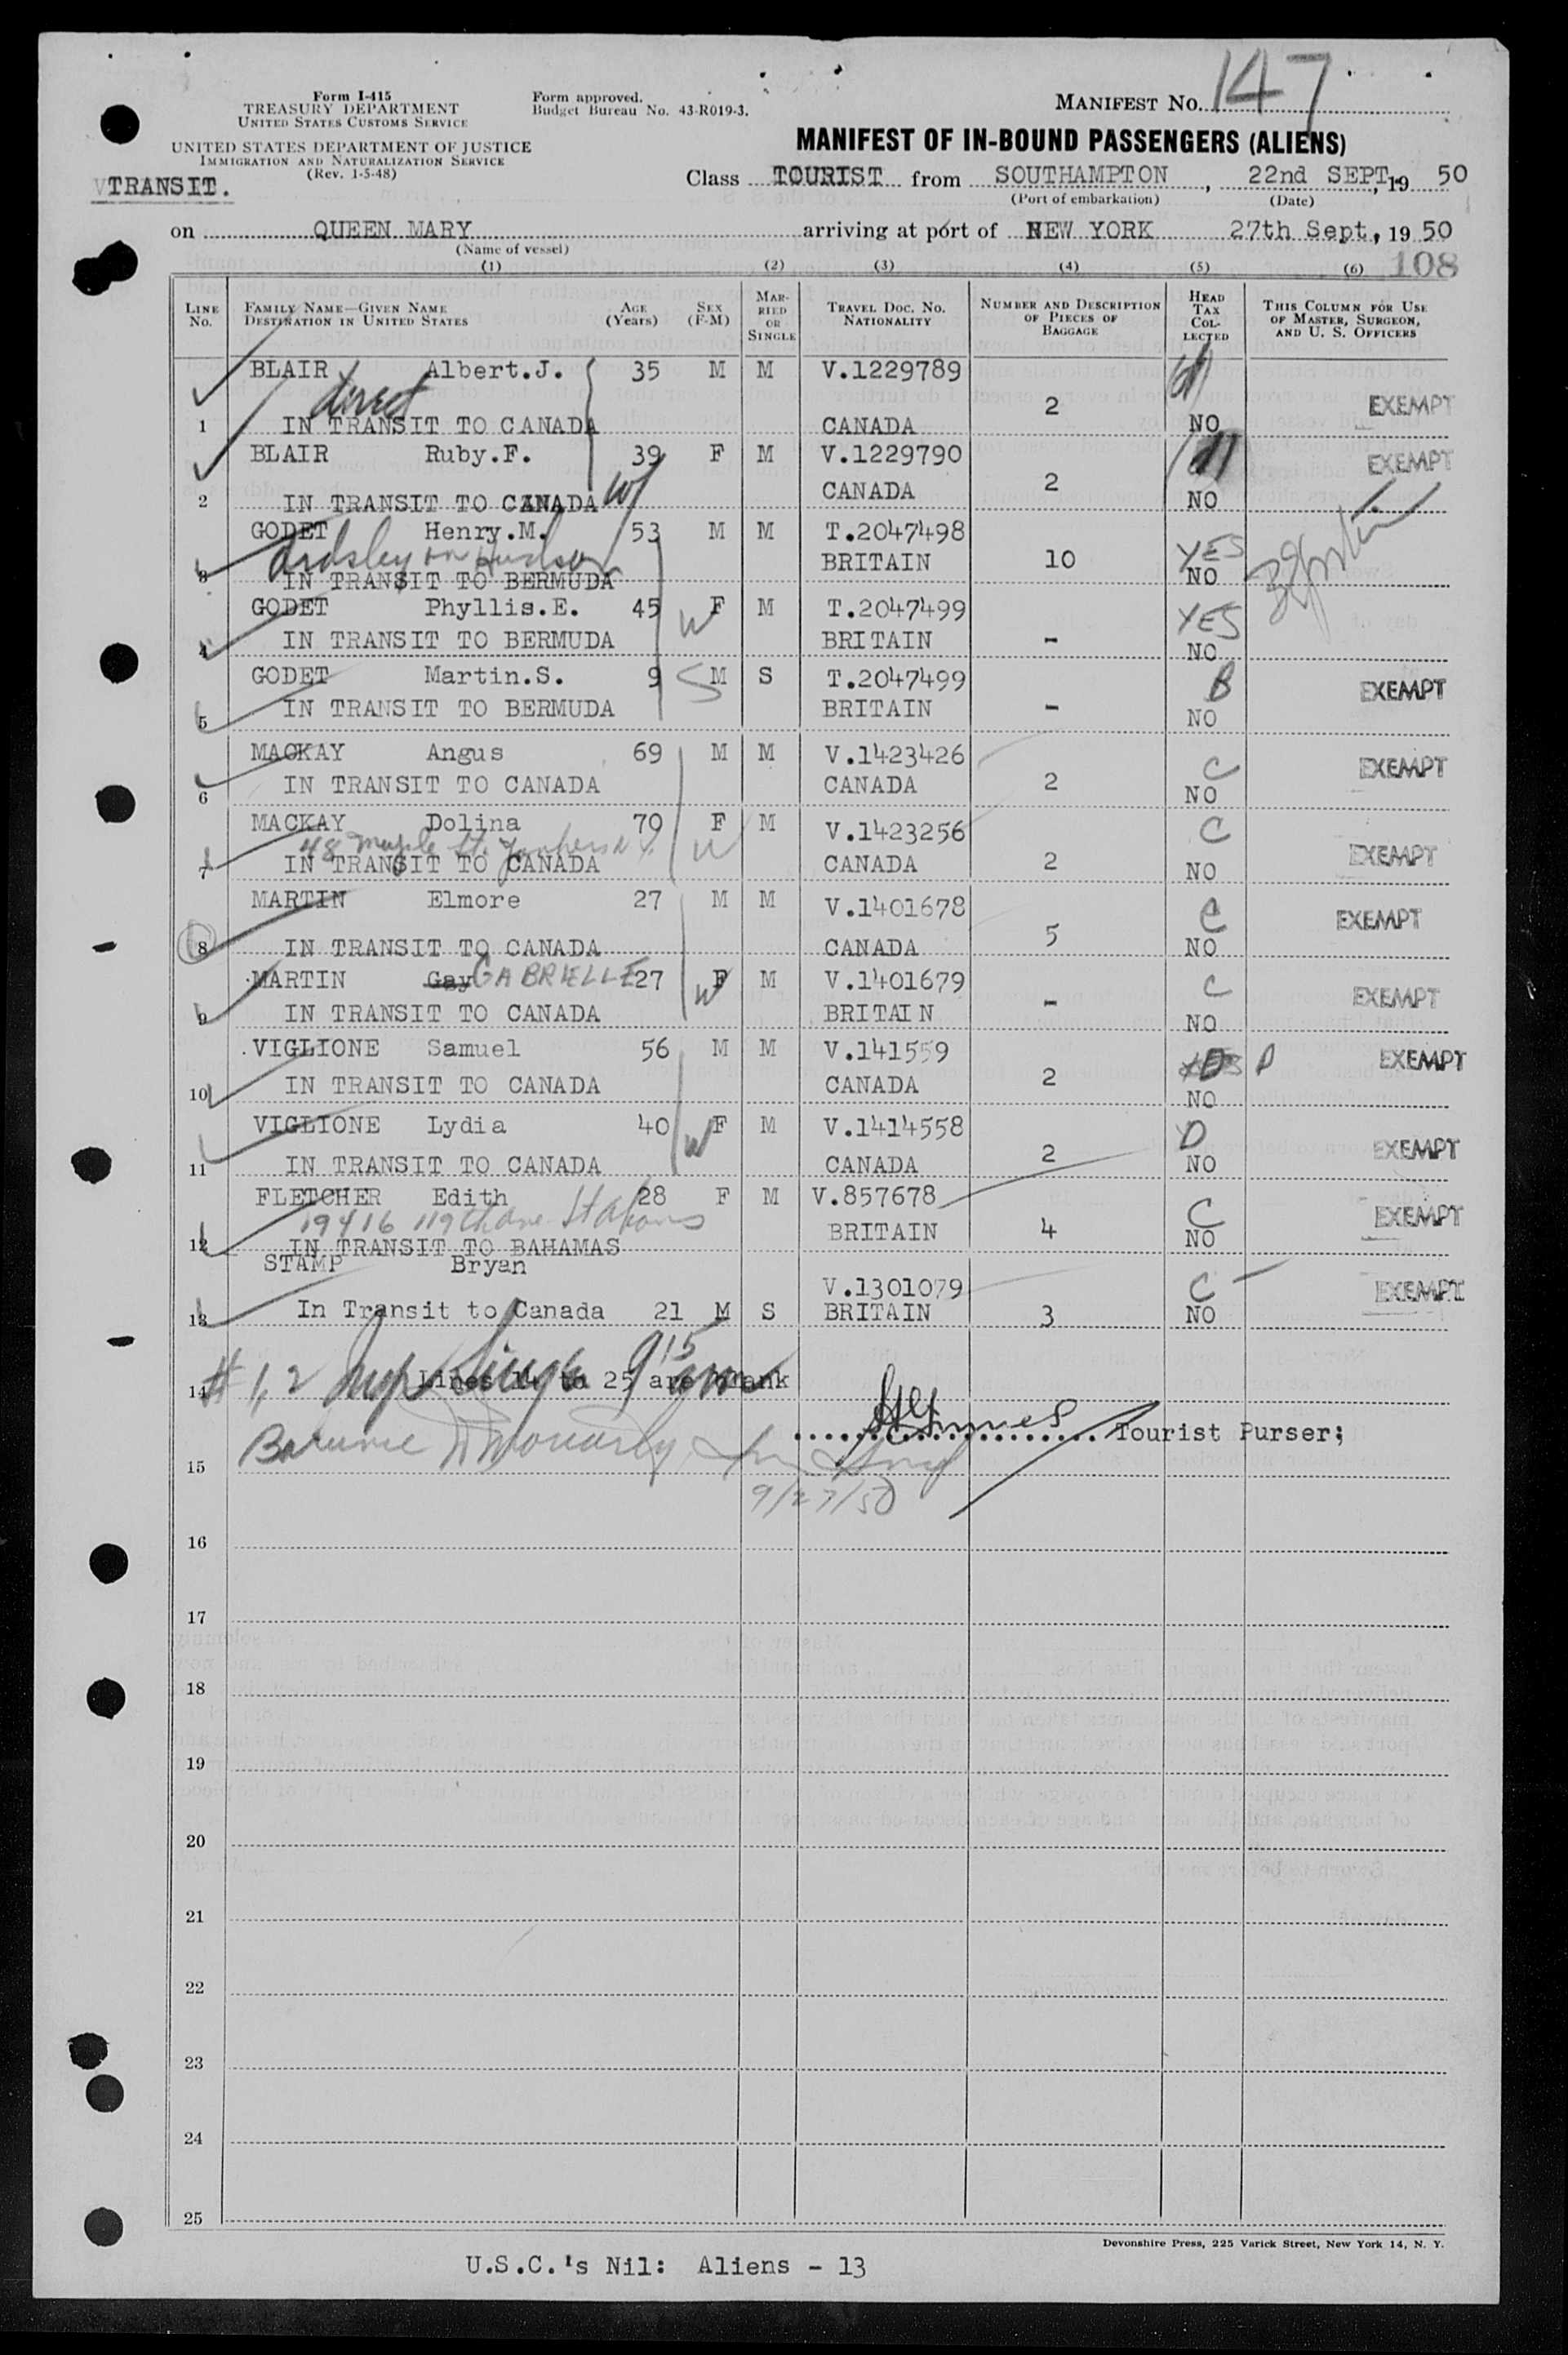 Form I-415
TREASURY DEPARTMENT
UNITED STATES CUSTOMS SERVICE
UNITED STATES DEPARTMENT OF JUSTICE
IMMIGRATION AND NATURALIZATION SERVICE
(Rev. 1-5-48)
TRANSIT.
Form approved.
Budget Bureau No. 43-R019-3.
MANIFEST NO. 147
MANIFEST OF IN-BOUND PASSENGERS (ALIENS)
Class TOURIST from SOUTHAMPTON, 22nd SEPT, 19 50
(Port of embarkation) (Date)
on QUEEN MARY arriving at port of NEW YORK 27th Sept, 19 50
(Name of vessel)
108
(1) (2) (3) (4) (5) (6)
LINE NO. FAMILY NAME—GIVEN NAME DESTINATION IN UNITED STATES AGE (Years) SEX (F-M) MARRIED OR SINGLE TRAVEL DOC. NO. NATIONALITY NUMBER AND DESCRIPTION OF PIECES OF BAGGAGE HEAD TAX COLLECTED THIS COLUMN FOR USE OF MASTER, SURGEON, AND U. S. OFFICERS
BLAIR Albert.J. 35 M M V.1229789
direct
1 IN TRANSIT TO CANADA CANADA 2 NO EXEMPT
BLAIR Ruby.F. 39 F M V.1229790
2 IN TRANSIT TO CANADA W CANADA 2 NO EXEMPT
GODET Henry.M. 53 M M T.2047498
Ardsley on Hudson
3 IN TRANSIT TO BERMUDA BRITAIN 10 YES NO
GODET Phyllis.E. 45 W F M T.2047499
4 IN TRANSIT TO BERMUDA BRITAIN - YES NO
GODET Martin.S. 9 S M S T.2047499
5 IN TRANSIT TO BERMUDA BRITAIN - B NO EXEMPT
MACKAY Angus 69 M M V.1423426
6 IN TRANSIT TO CANADA CANADA 2 C NO EXEMPT
MACKAY Dolina 70 F M V.1423256
48 Maple St. Yonkers N.Y.
7 IN TRANSIT TO CANADA W CANADA 2 C NO EXEMPT
MARTIN Elmore 27 M M V.1401678
8 IN TRANSIT TO CANADA CANADA 5 C NO EXEMPT
MARTIN Gay GABRIELLE 27 W F M V.1401679
9 IN TRANSIT TO CANADA BRITAIN - C NO EXEMPT
VIGLIONE Samuel 56 M M V.141559
10 IN TRANSIT TO CANADA CANADA 2 D NO EXEMPT
VIGLIONE Lydia 40 W F M V.1414558
11 IN TRANSIT TO CANADA CANADA 2 D NO EXEMPT
FLETCHER Edith 28 F M V.857678
194 16 119th Ave St Albans
12 IN TRANSIT TO BAHAMAS BRITAIN 4 C NO EXEMPT
STAMP Bryan V.1301079
13 In Transit to Canada 21 M S BRITAIN 3 C NO EXEMPT
# 1, 2 915 am
14 Lines 14 to 25 are blank
Tourist Purser;
15
9/27/50
16
17
18
19
20
21
22
23
24
25
Devonshire Press, 225 Varick Street, New York 14, N. Y.
U.S.C.'s Nil: Aliens - 13